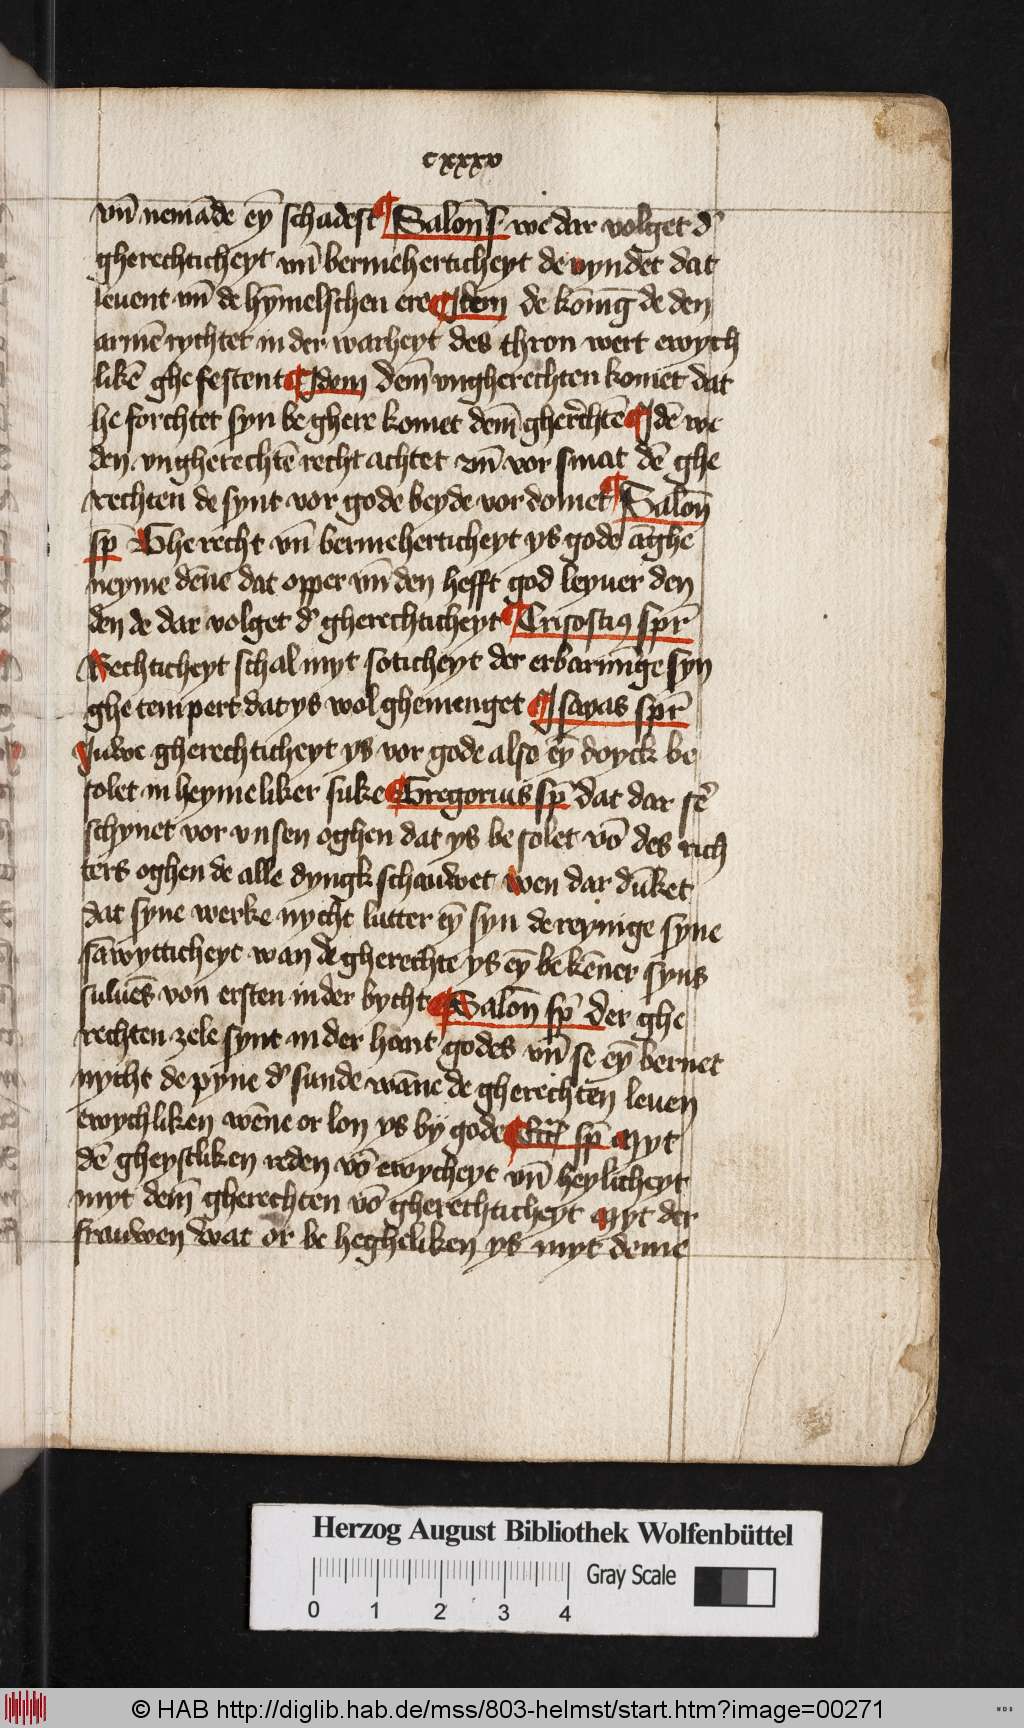 cxxxv
vn̄ nemāde eȳ schadest ¶ Salon̄ s· we dar volget d'
gherechticheyt vn̄ bermeherticheyt de vyndet dat
leuent vn̄ de hȳmelschen ere ¶ Jdem de konīg de den
armē rychtet in der warheyt des thron wert ewych
likē ghe festent ¶ Jdem dem̄ vngherechten komet dat
he forchtet syn be ghere komet dem̄ gherechtē ¶ Jdē we
den vngherechtē recht achtet vn̄ vor smat dē ghe
rechten de synt vor gode beyde vor domet ¶ Salon̄
sp̄ Ghe recht vn̄ bermeherticheyt ys gode āghe
neyme dēne dat opper vn̄ den hefft god leyuer den
den de dar volget d' gherechticheyt ¶ Crisostiꝯ spr̄
Rechticheyt schal myt soticheyt der erbarmīge syn
ghe tempert dat ys wol ghemenget ¶ Jsayas spr̄
Juwe gherechticheyt ys vor gode also eȳ doyck be
solet in heymeliker suke ¶ Gregorius sp̄ dat dar sc̄
schynet vor vnsen oghen dat ys be solet vō des rich
ters oghen de alle dyngk schauwet wen dar dūket
dat syne werke nycht lutter eȳ syn de reynige syne
sāwytticheyt wan de gherechte ys eȳ be kēner syns
suluēs von ersten in der bycht ¶ Salon̄ sp̄ der ghe
rechten zele synt in der hant godes vn̄ se eȳ bernet
nycht de pyne d' sunde wāne de gherechten leuen
ewychliken wēne or lon ys by gode ¶ sp̄ Myt
dē gheystliken reden vō ewycheyt vn̄ heylicheyt
myt dem̄ gherechten vō gherechticheyt Myt der
frauwen wat or be hegheliken ys myt deme
Herzog August Bibliothek Wolfenbüttel
Gray Scale
0 1 2 3 4
© HAB http://diglib.hab.de/mss/803-helmst/start.htm?image=00271